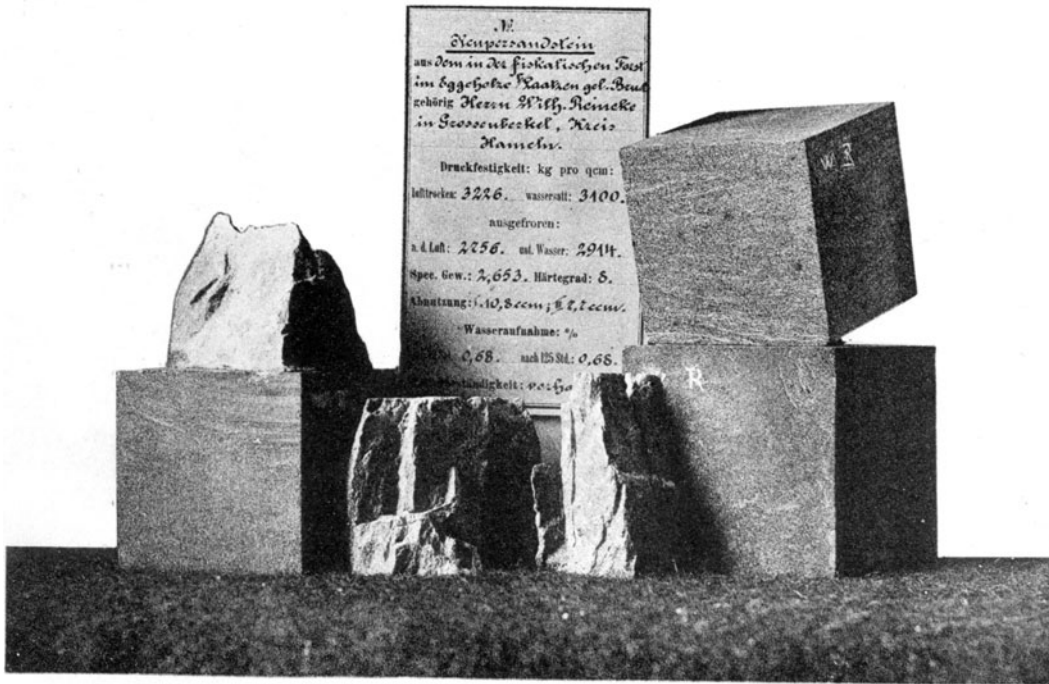 №
Keupersandstein
aus dem in der fiskalischen Forst
im Eggeholze /Raatzen gel. Bruch
gehörig Herrn Wilh. Reineke
in Grossenberkel, Kreis
Hameln.
Druckfestigkeit: kg pro qcm:
lufttrocken: 3226. wassersatt: 3100.
ausgefroren:
a. d. Luft: 2756. unt. Wasser: 2914.
Spec. Gew.: 2,653. Härtegrad: 8.
Abnutzung: I. 10,8 ccm; II 2,2 ccm.
Wasseraufnahme: %
0,68. nach 125 Std.: 0,68.
ständigkeit: vorha
W R
R